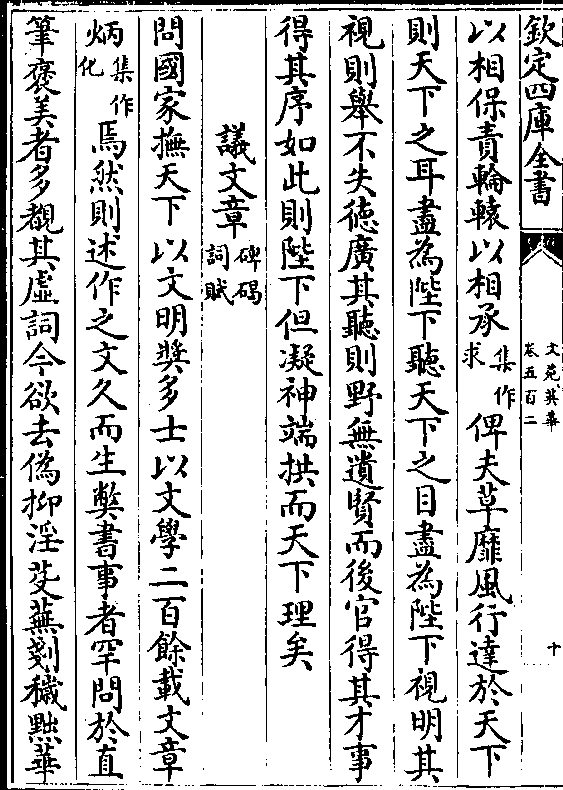 欽定四庫全書
文苑英華
卷五百二
十
以相保責輪轅以相承集作求俾夫草靡風行達於天下
則天下之耳盡為陛下聽天下之目盡為陛下視明其
視則舉不失徳廣其聽則野無遺賢而後官得其才事
得其序如此則陛下但凝神端拱而天下理矣
議文章碑碣詞賦
問國家撫天下以文明奬多士以文學二百餘載文章
炳集作化焉然則述作之文久而生弊書事者罕問於直
筆褒美者多覩其虛詞今欲去偽抑淫芟蕪剗穢黜華